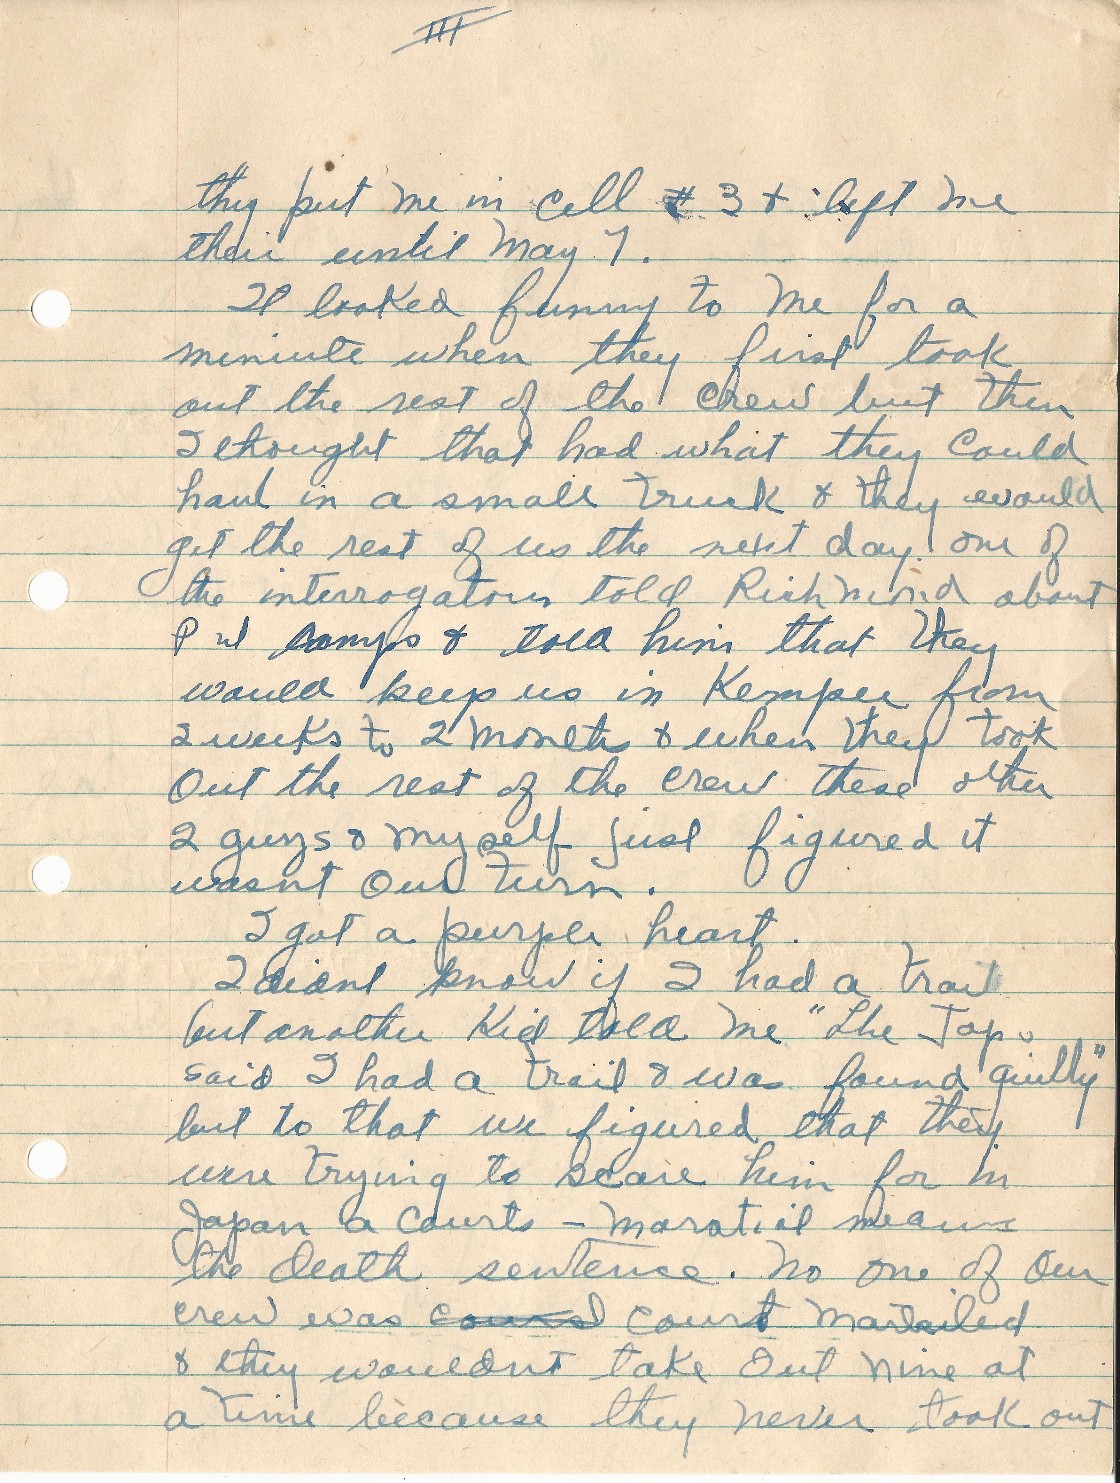 III
they put me in cell # 3 & left me
their until May 7.
It looked funny to me for a
miniute when they first took
out the rest of the crew but then
I thought that had what they could
haul in a small truck & they would
get the rest of us the next day. one of
the interrogators told Richmond about
P W camps & told him that they
would keep us in Kempei from
2 weeks to 2 month & when they took
out the rest of the crew these other
2 guys & myself just figured it
wasnt our turn.
I got a purple heart.
I didnt know if I had a trail
but another kid told me "the Japs
said I had a trail & was found guilty"
but to that we figured that they
were trying to scare him for in
Japan a courts - maratial means
the death sentence. No one of our
crew was court
& they wouldnt take out nine at
a time because they never took out